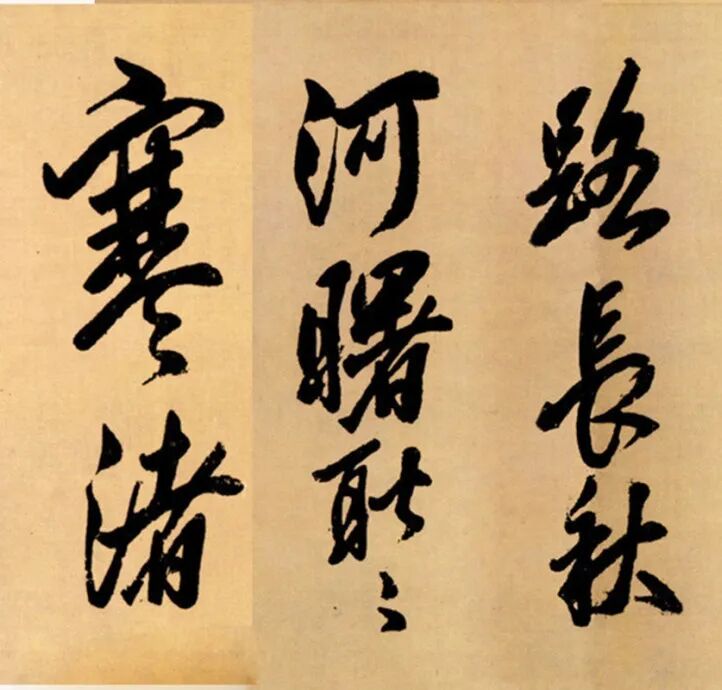 路長秋
河曙耿〻
寒渚